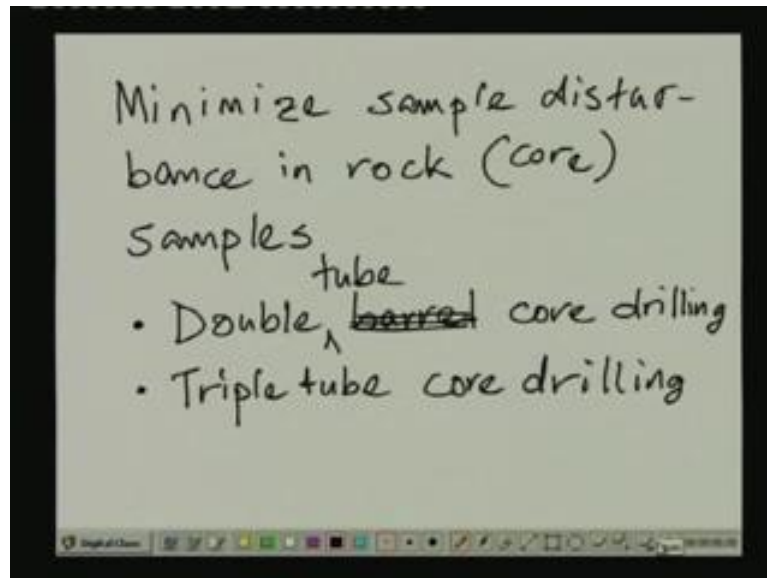 Minimize sample distur-
bance in rock (core)
samples
tube
• Double ^ barrel core drilling
• Triple tube core drilling